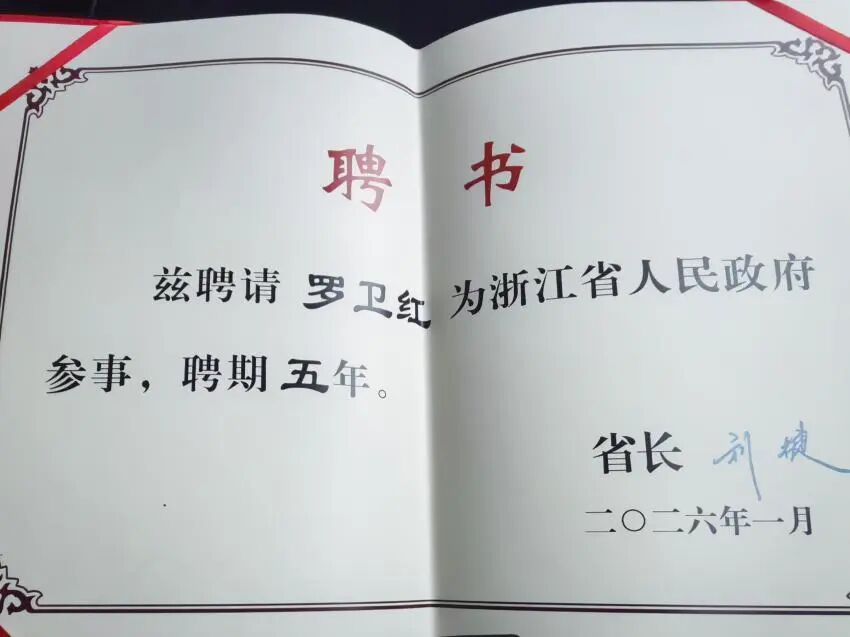 聘书
兹聘请 罗卫红 为浙江省人民政府
参事，聘期五年。
省长 刘捷
二〇二六年一月